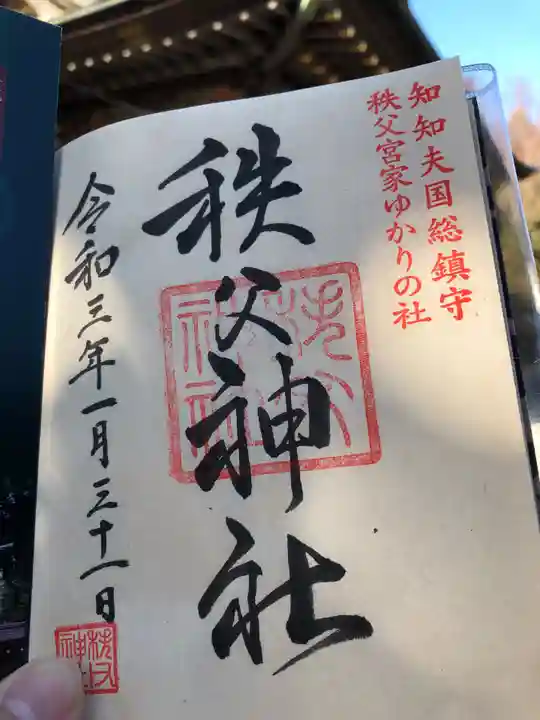 知知夫国総鎮守
秩父宮家ゆかりの社
秩父神社
秩父神社
令和三年一月三十一日
秩父神社